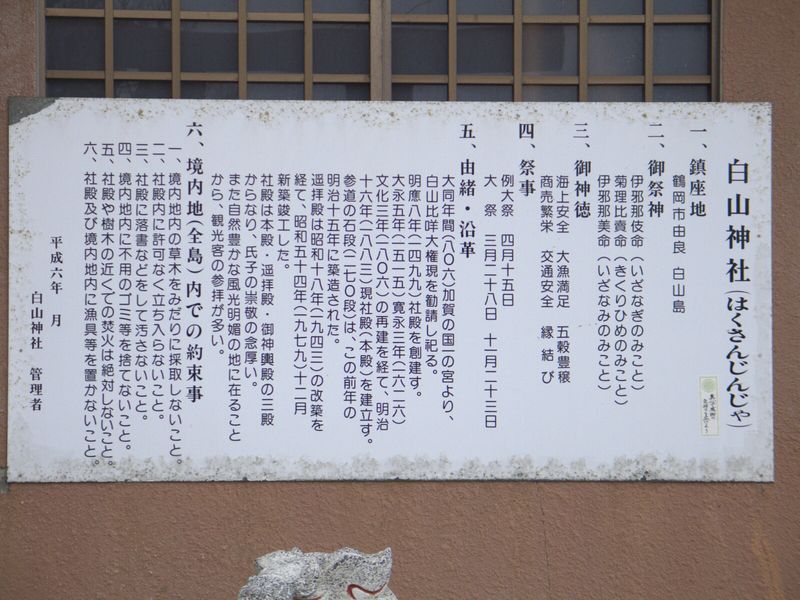 白山神社(はくさんじんじゃ)
一、鎮座地
鶴岡市由良 白山島
二、御祭神
伊邪那伎命(いざなぎのみこと)
菊理比賣命(きくりひめのみこと)
伊邪那美命(いざなみのみこと)
三、御神徳
海上安全 大漁満足 五穀豊穣
商売繁栄 交通安全 縁結び
四、祭事
例大祭 四月十五日
大祭 三月二十八日 十二月二十三日
五、由緒・沿革
大同年間(八〇六)加賀の国一の宮より、
白山比咩大権現を勧請し祀る。
明應八年(一四九九)社殿を創建す。
大永五年(一五一五)寛永三年(一六二六)
文化三年(一八〇六)の再建を経て、明治
十六年(一八八三)現社殿(本殿)を建立す。
参道の石段(二七〇段)は、この前年の
明治十五年に築造された。
遥拝殿は昭和十八年(一九四三)の改築を
経て、昭和五十四年(一九七九)十二月
新築竣工した。
社殿は本殿・遥拝殿・御神輿殿の三殿
からなり、氏子の崇敬の念厚い。
また自然豊かな風光明媚の地に在ること
から、観光客の参拝が多い。
六、境内地(全島)内での約束事
一、境内地内の草木をみだりに採取しないこと。
二、社殿内に許可なく立ち入らないこと。
三、社殿に落書などをして汚さないこと。
四、境内地内に不用のゴミ等を捨てないこと。
五、社殿や樹木の近くでの焚火は絶対しないこと。
六、社殿及び境内地内に漁具等を置かないこと。
平成六年 月
白山神社 管理者